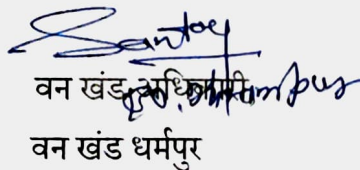 Santosh
वन खंड अधिकारी
वन खंड धर्मपुर